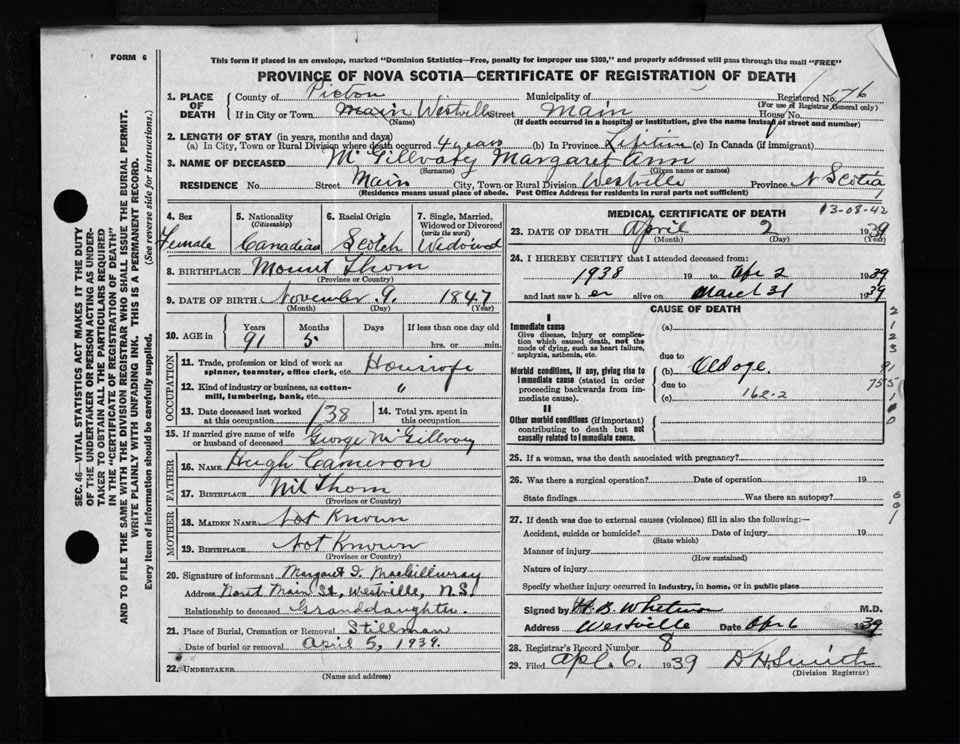 FORM 6
This form if placed in an envelope, marked "Dominion Statistics—Free, penalty for improper use $300," and properly addressed will pass through the mail "FREE"
PROVINCE OF NOVA SCOTIA—CERTIFICATE OF REGISTRATION OF DEATH
1. PLACE OF DEATH County of Pictou Municipality of Registered No. 176
(For use of Registrar General only)
If in City or Town Main Westville Street Main House No.
(Name) (If death occurred in a hospital or institution, give the name instead of street and number)
2. LENGTH OF STAY (in years, months and days)
(a) In City, Town or Rural Division where death occurred 4 years (b) In Province Lifetime (c) In Canada (if immigrant)
3. NAME OF DECEASED McGillvary Margaret Ann
(Surname) (Given name or names)
RESIDENCE No. Street Main City, Town or Rural Division Westville Province N Scotia
(Residence means usual place of abode. Post Office Address for residents in rural parts not sufficient)
4. Sex Female
5. Nationality (Citizenship) Canadian
6. Racial Origin Scotch
7. Single, Married, Widowed or Divorced (write the word) Widowed
8. BIRTHPLACE Mount Thom
(Province or Country)
9. DATE OF BIRTH November 9. 1847
(Month) (Day) (Year)
10. AGE in Years 91 Months 5 Days If less than one day old hrs. or min.
OCCUPATION
11. Trade, profession or kind of work as spinner, teamster, office clerk, etc. Housewife
12. Kind of industry or business, as cotton-mill, lumbering, bank, etc. "
13. Date deceased last worked at this occupation 138
14. Total yrs. spent in this occupation
15. If married give name of wife or husband of deceased George McGillvray
FATHER
16. NAME Hugh Cameron
17. BIRTHPLACE Mt Thom
(Province or Country)
MOTHER
18. MAIDEN NAME Not Known
19. BIRTHPLACE Not Known
(Province or Country)
20. Signature of informant Margaret I. MacGillivray
Address North Main St, Westville, N.S.
Relationship to deceased Granddaughter.
21. Place of Burial, Cremation or Removal Stillman
Date of burial or removal April 5, 1939.
22. UNDERTAKER
(Name and address)
MEDICAL CERTIFICATE OF DEATH 13-08-42
23. DATE OF DEATH April 2 1939
(Month) (Day) (Year)
24. I HEREBY CERTIFY that I attended deceased from:
1938 19 to Apr 2 1939
and last saw h er alive on March 31 1939
CAUSE OF DEATH
I
Immediate cause
Give disease, injury or complication which caused death, not the mode of dying, such as heart failure, asphyxia, asthenia, etc.
(a)
due to
Morbid conditions, if any, giving rise to immediate cause (stated in order proceeding backwards from immediate cause).
(b) Old age.
due to
(c) 162-2
II
Other morbid conditions (if important) contributing to death but not causally related to immediate cause.
25. If a woman, was the death associated with pregnancy?
26. Was there a surgical operation? Date of operation 19
State findings Was there an autopsy?
27. If death was due to external causes (violence) fill in also the following:—
Accident, suicide or homicide? Date of injury 19
(State which)
Manner of injury
(How sustained)
Nature of injury
Specify whether injury occurred in industry, in home, or in public place
Signed by H. B. Whitman M.D.
Address Westville Date Apr 6 1939
28. Registrar's Record Number 8
29. Filed Apl. 6. 1939 D H Smith
(Division Registrar)
SEC. 46—VITAL STATISTICS ACT MAKES IT THE DUTY
OF THE UNDERTAKER OR PERSON ACTING AS UNDERTAKER TO OBTAIN ALL THE PARTICULARS REQUIRED
IN THE "CERTIFICATE OF REGISTRATION OF DEATH"
AND TO FILE THE SAME WITH THE DIVISION REGISTRAR WHO SHALL ISSUE THE BURIAL PERMIT.
WRITE PLAINLY WITH UNFADING INK. THIS IS A PERMANENT RECORD.
Every item of information should be carefully supplied. (See reverse side for instructions.)